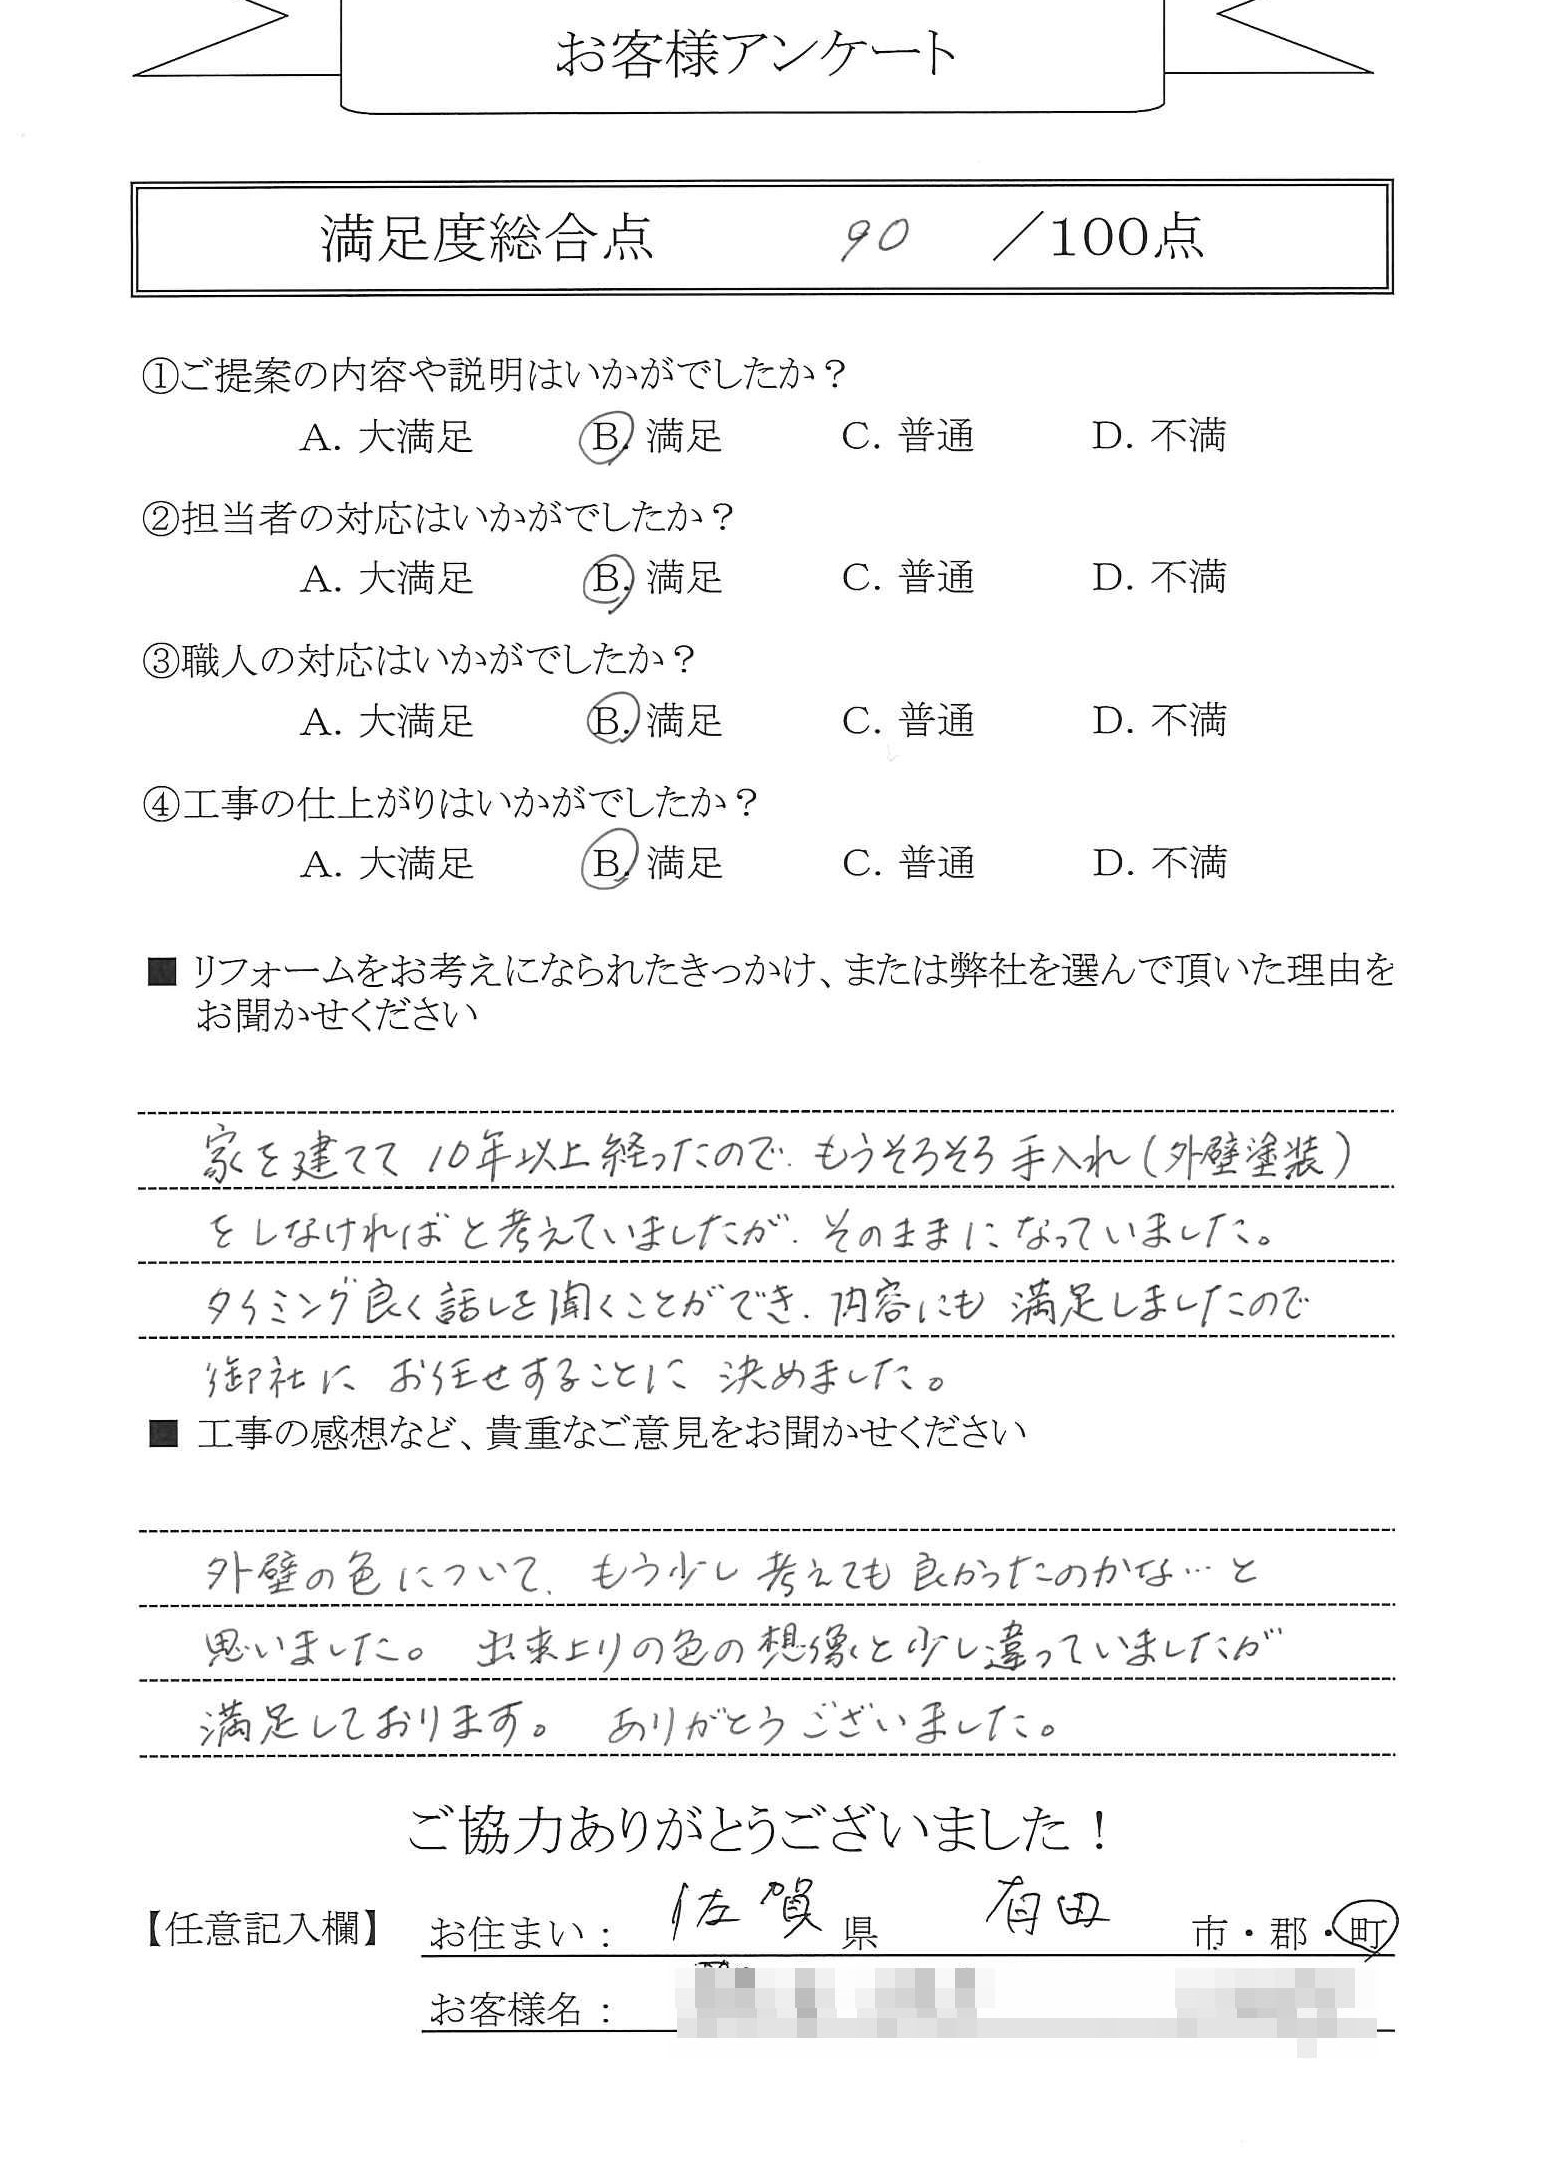 お客様アンケート
満足度総合点 90 ／100点
①ご提案の内容や説明はいかがでしたか？
A. 大満足 B. 満足 C. 普通 D. 不満
②担当者の対応はいかがでしたか？
A. 大満足 B. 満足 C. 普通 D. 不満
③職人の対応はいかがでしたか？
A. 大満足 B. 満足 C. 普通 D. 不満
④工事の仕上がりはいかがでしたか？
A. 大満足 B. 満足 C. 普通 D. 不満
■ リフォームをお考えになられたきっかけ、または弊社を選んで頂いた理由を
お聞かせください
家を建てて 10年以上経ったので、もうそろそろ手入れ(外壁塗装)
をしなければと考えていましたが、そのままになっていました。
タイミング良く話しを聞くことができ、内容にも満足しましたので
御社にお任せすることに決めました。
■ 工事の感想など、貴重なご意見をお聞かせください
外壁の色について、もう少し考えても良かったのかな…と
思いました。 出来上りの色の想像と少し違っていましたが
満足しております。 ありがとうございました。
ご協力ありがとうございました！
【任意記入欄】 お住まい： 佐賀 県 有田 市・郡・町
お客様名：